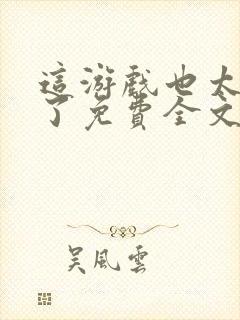 這游戲也太
了免費全文
吴風雲